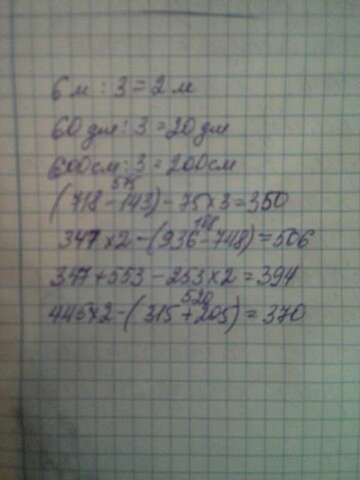 6 м : 3 = 2 м
60 дм : 3 = 20 дм
600 см : 3 = 200 см
575
(718 - 143) - 75 × 3 = 350
188
347 × 2 - (936 - 748) = 506
347 + 553 - 253 × 2 = 394
520
445 × 2 - (315 + 205) = 370